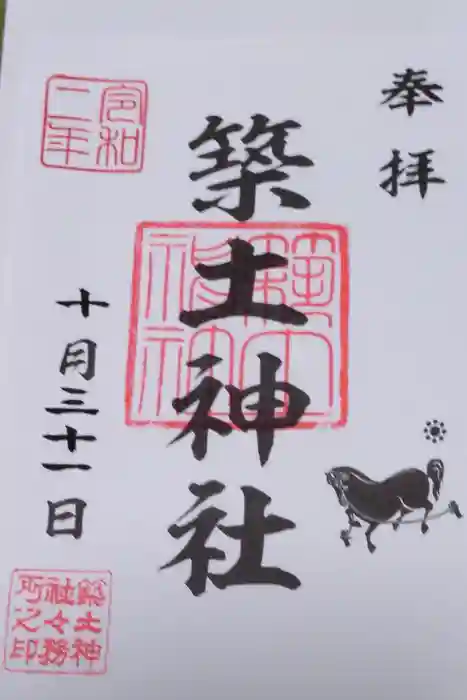 奉拝
築土神社
令和二年
十月三十一日
築土神
社々務
所之印